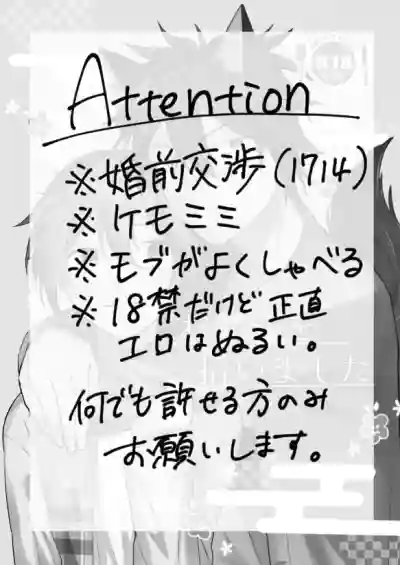 Attention
※婚前交渉(1714)
※ケモミミ
※モブがよくしゃべる
※18禁だけど正直
エロはぬるい。
何でも許せる方のみ
お願いします。